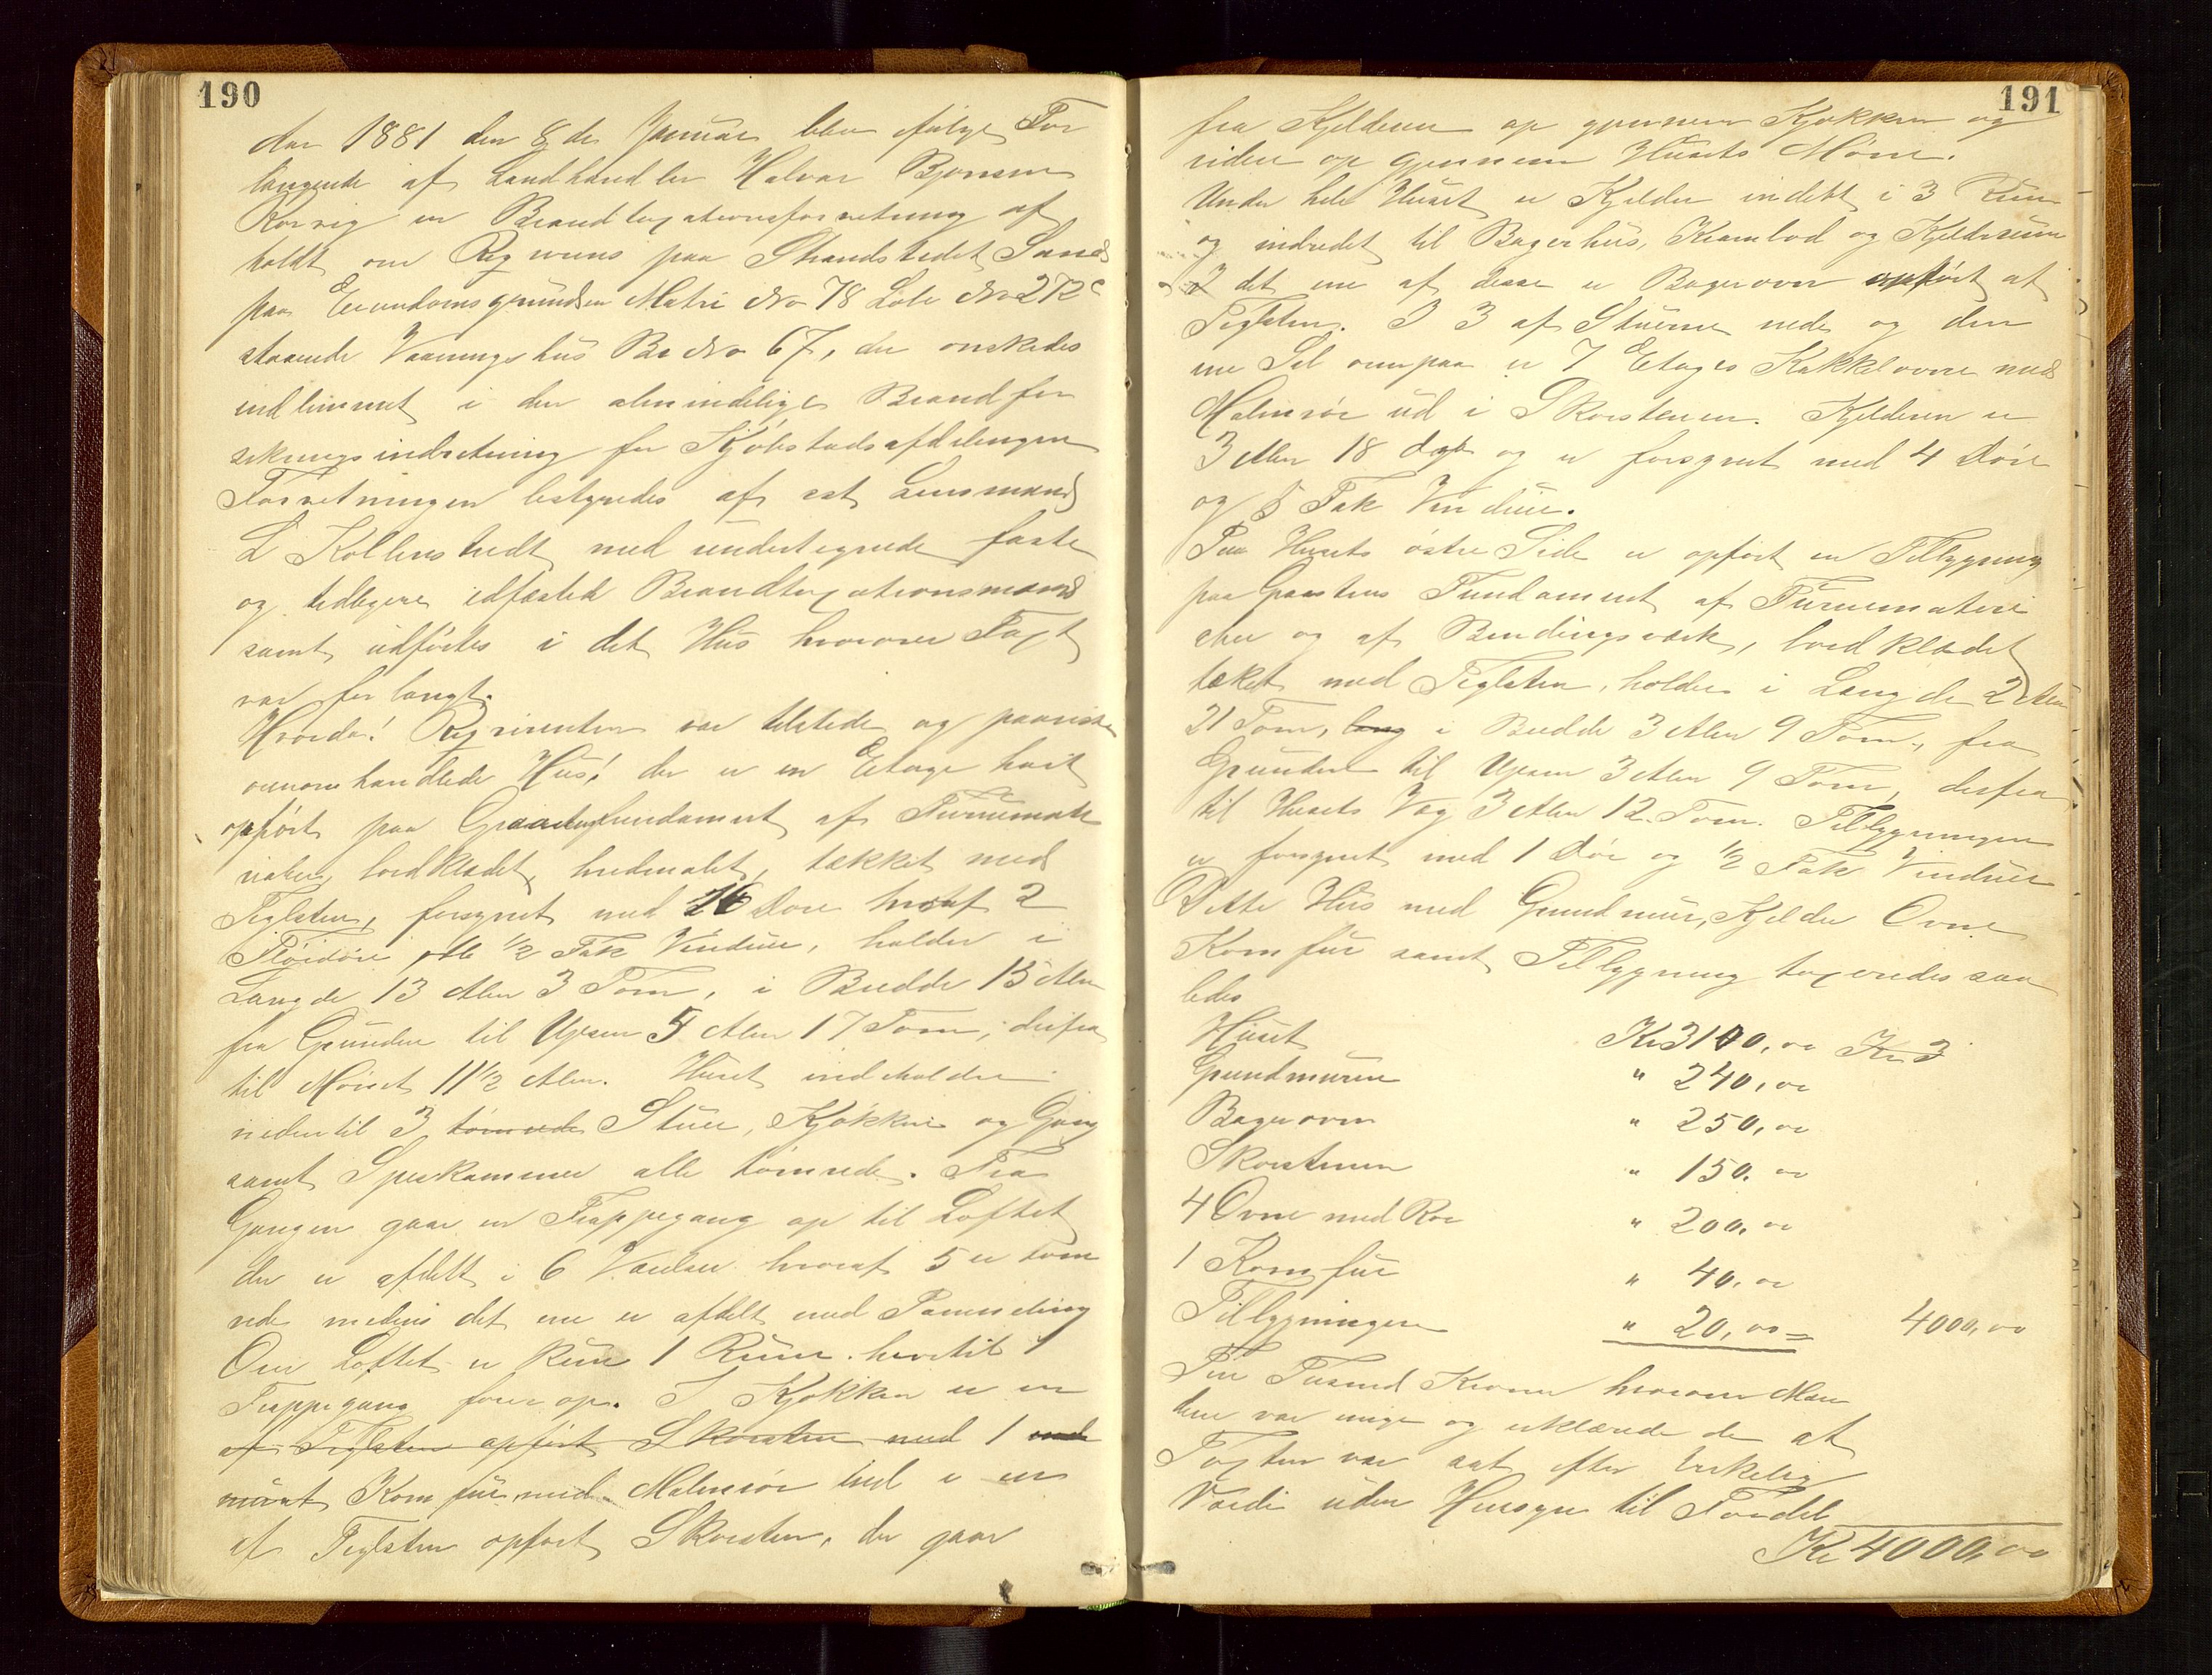 190
Aar 1881 den 8de Januar blev ifølge For
langende af Landhandler Halvar Bjønsen
Korvig en Brandtaxationsforretning af
holdt over Reqvirens paa Strandstedet Sand
paa Eiendomsgrunden Matr No 78 Løbe No 272c
staaende Vaaningshus Br No 67, der ønskedes
indlemmet i den almindelige Brandfor
sikringsindretning for Kjøbstadsafdelingen
Forretningen bestyredes af cst Lensmand
L Kollenstedt med undertegnede faste
og tidligere edfæstede Brandtaxationsmænd
samt udførtes i det Hus hvorover Taxt
var forlangt.
Hvorda! Reqvirenten var tilstede og paaviste
ovenomhandlede Hus! der er en Etage høit
opført paa Graastensfundament af Furumate
rialier, bordklædet, hvidmalet, tækket med
Teglsten, forsynet med 16 Døre hvoraf 2
Fløidøre, 16 1/2 Fak Vinduer, holder i
Længde 13 Alen 3 Tom, i Bredde 15 Alen
fra Grunden til Upsen 5 Alen 17 Tom; derfra
til Mønet 11 1/2 Alen. Huset indeholder
nedentil 3 tømrede Stuer, Kjøkken og Gang
samt Speskammer alle tømrede. Fra
Gangen gaar en Trappegang op til Loftet
der er afdelt i 6 Værelser hvoraf 5 er tøm
rede medens det ene er afdelt med Panneling
Over Loftet er kun 1 Rum hvortil 1
Trappegang fører op. I Kjøkken er en
af Teglsten opført Skorsten med 1 ind
muret Komfur med Malmrør ind i en
af Teglsten opført Skorsten, der gaar
191
fra Kjelderen op gjennem Kjøkken og
videre op gjennem Husets Møne.
Under hele Huset er Kjelder inddelt i 3 Rum
og indredet til Bagerhus, Krambod og Kjelderrum
I det ene af disse er Bagerovn opført af
Teglsten. I 3 af Stuerne nede og den
ene Sal ovenpaa er 7 Etages Kakkelovne med
Malmrør ud i Skorstenen. Kjelderen er
3 Alen 18 dyb og er forsynet med 4 Døre
og 5 Fak Vinduer.
Paa Husets østre Side er opført en Tilbygning
paa Graastens Fundament af Furumateri
aler og af Bindingsværk, bordklædet
tæket med Teglsten, holder i Længde 2 Alen
21 Tom, lang i Bredde 3 Alen 9 Tom, fra
Grunden til Upsen 3 Alen 9 Tom, derfra
til Husets Væg 3 Alen 12 Tom. Tilbygningen
er forsynet med 1 Dør og 1/2 Fak Vinduer
Dette Hus med Grundmur, Kjelder Ovne
Komfur samt Tilbygning taxeredes saa
ledes
Huset Kr 3100,00 Kr 3
Grundmuren " 240,00
Bagerovn " 250,00
Skorstenen " 150.00
4 Ovne med Rør " 200,00
1 Komfur " 40,00
Tilbygningen " 20,00 = 4000,00
Fire Tusend Kroner hvorom Mæn
dene var enige og erklærede de at
Taxten var sat efter virkelig
Værdi uden Hensyn til Fordel
Kr 4000,00